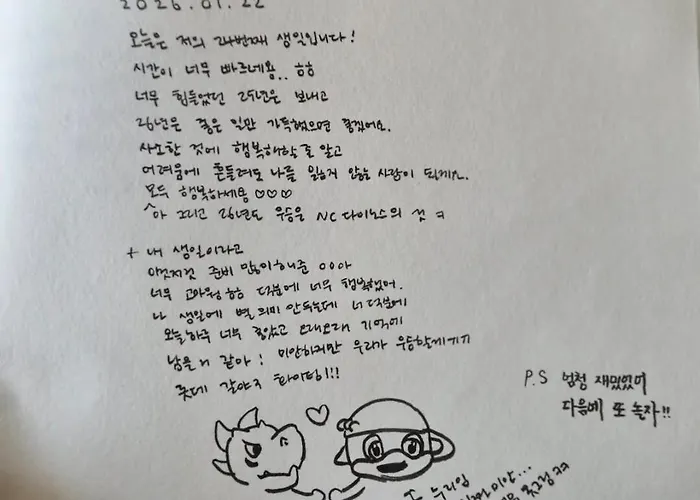 2026.01.22
오늘은 저의 24번째 생일입니다!
시간이 너무 빠르네용.. ㅎㅎ
너무 힘들었던 25년은 보내고
26년은 좋은 일만 가득했으면 좋겠어요.
사소한 것에 행복해할 줄 알고
어려움에 흔들려도 나를 잃어 않는 사람이 되게.
모두 행복하세용 ♡♡♡
^아 그리고 26년도 우승은 NC 다이노스의 것 ㅋ
+ 내 생일이라고
이것저것 준비 많이해준 ㅇㅇㅇ아
너무 고마워 ㅎㅎ 덕분에 너무 행복했어.
나 생일에 별 의미 안두는데 너 덕분에
오늘하루 너무 좋았고 오래오래 기억에
남을 거 같아! 미안하지만 우리가 우승할게 ㅋㅋ
롯데 갈아지 화이팅!!!
P.S 엄청 재밌었어
다음에 또 놀자!!
누리일
미안...